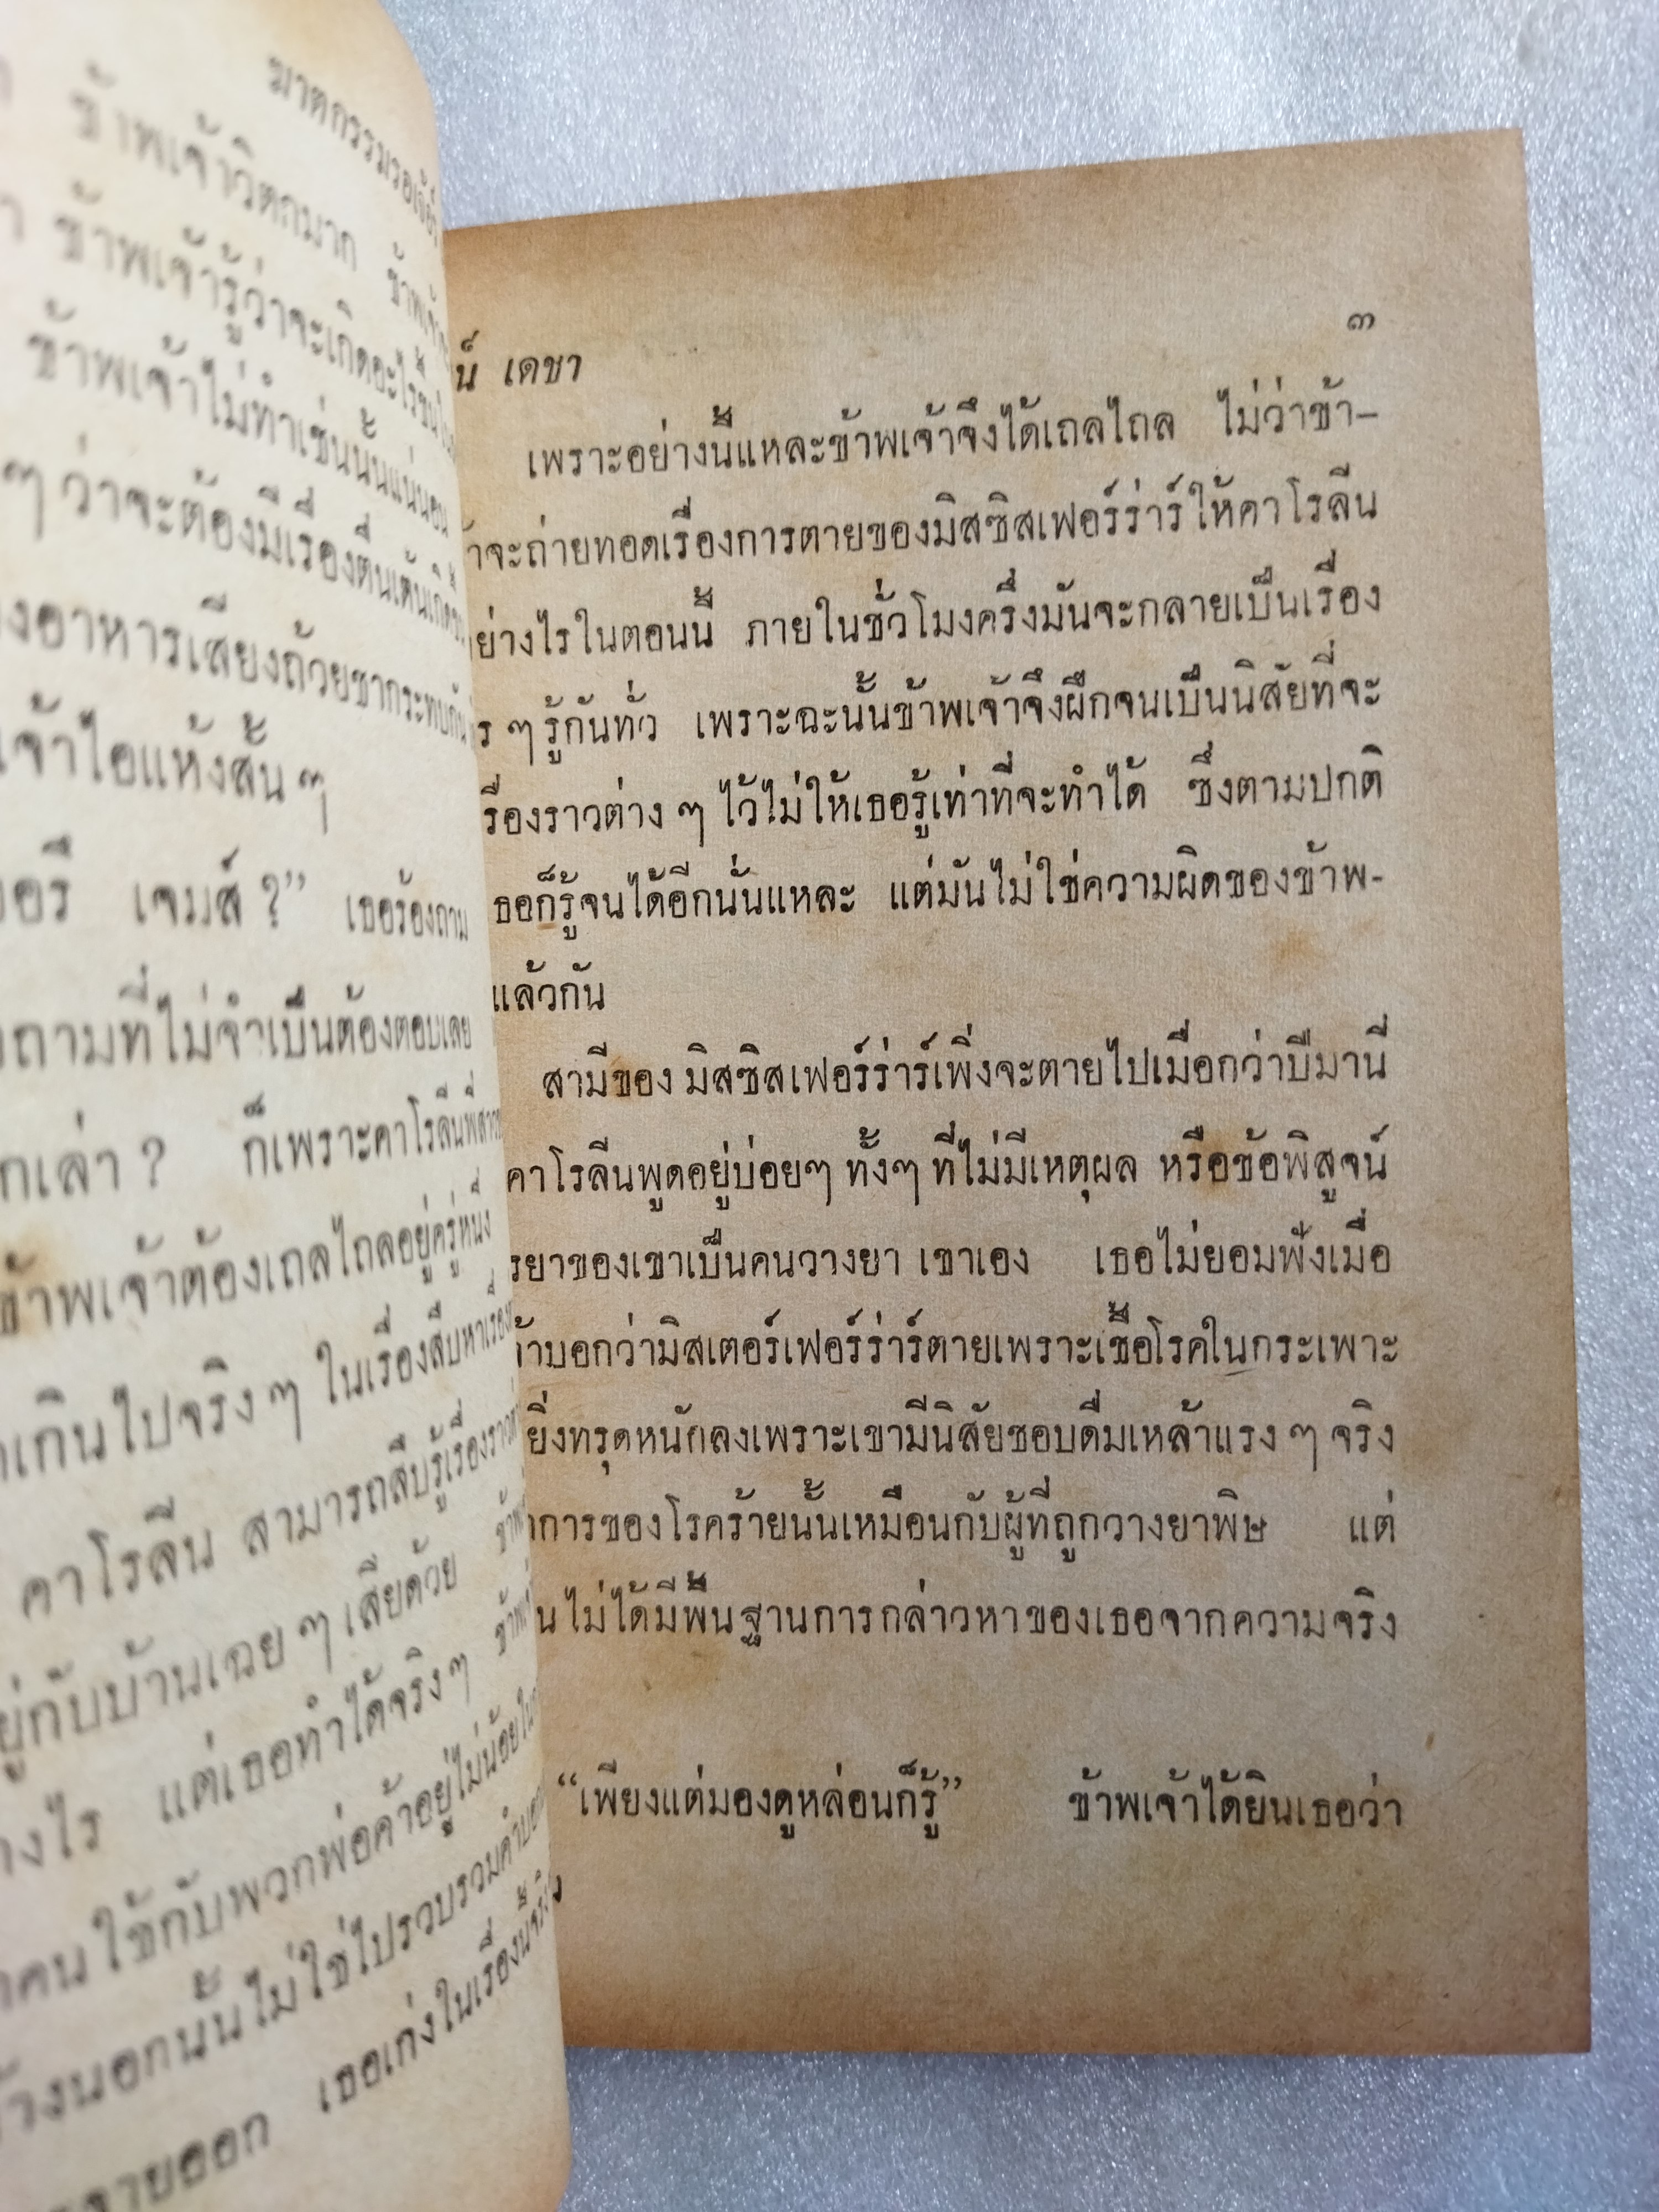 ฆาตกรรมรอเจ้อร์
ข้าพเจ้าวิตกมาก
ข้าพเจ้ารู้ว่าจะเกิดอะไรขึ้น
ข้าพเจ้าไม่ทำเช่นนั้นแน่นอน
ๆ ว่าจะต้องมีเรื่องตื่นเต้น
งอาหารเสียงถ้วยชากระทบกัน
เจ้าไอแห้งสั้น ๆ
เจมส์ ?” เธอร้องถาม
ถามที่ไม่จำเป็นต้องตอบเลย
กเล่า ? ก็เพราะคาโรลีน
ข้าพเจ้าต้องเถลไถลอยู่ครู่หนึ่ง
เกินไปจริง ๆ ในเรื่องสืบหาเรื่อง
คาโรลีน สามารถสืบรู้เรื่องราว
ยู่กับบ้านเฉย ๆ เสียด้วย
างไร แต่เธอทำได้จริง ๆ
คนใช้กับพวกพ่อค้าอยู่ไม่น้อย
้างนอกนั้นไม่ใช่ไปรวบรวม
ายออก เธอเก่งในเรื่องนี้จริง
น์ เดชา
๓
เพราะอย่างนี้แหละข้าพเจ้าจึงได้เถลไถล ไม่ว่าข้า–
้าจะถ่ายทอดเรื่องการตายของมิสซิสเฟอร์ร่าร์ให้คาโรลีน
ย่างไรในตอนนี้ ภายในชั่วโมงครึ่งมันจะกลายเป็นเรื่อง
ร ๆ รู้กันทั่ว เพราะฉะนั้นข้าพเจ้าจึงฝึกจนเป็นนิสัยที่จะ
รื่องราวต่าง ๆ ไว้ไม่ให้เธอรู้เท่าที่จะทำได้ ซึ่งตามปกติ
ธอก็รู้จนได้อีกนั่นแหละ แต่มันไม่ใช่ความผิดของข้าพ-
แล้วกัน
สามีของ มิสซิสเฟอร์ร่าร์เพิ่งจะตายไปเมื่อกว่าปีมานี่
คาโรลีนพูดอยู่บ่อยๆ ทั้งๆ ที่ไม่มีเหตุผล หรือข้อพิสูจน์
รยาของเขาเป็นคนวางยา เขาเอง เธอไม่ยอมฟังเมื่อ
้าบอกว่ามิสเตอร์เฟอร์ร่าร์ตายเพราะเชื้อโรคในกระเพาะ
ยิ่งทรุดหนักลงเพราะเขามีนิสัยชอบดื่มเหล้าแรง ๆ จริง
าการของโรคร้ายนั้นเหมือนกับผู้ที่ถูกวางยาพิษ แต่
นไม่ได้มีพื้นฐานการกล่าวหาของเธอจากความจริง
“เพียงแต่มองดูหล่อนก็รู้” ข้าพเจ้าได้ยินเธอว่า